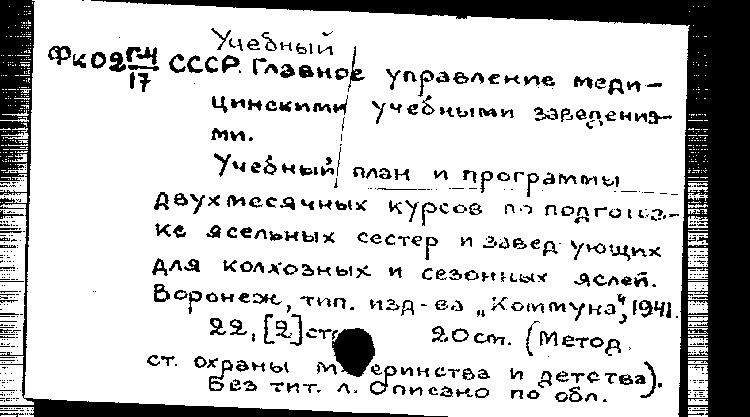 Учебный
ФК 02 ГМ/17 СССР. Главное управление меди-
цинскими учебными заведения-
ми.
Учебный план и программы
двухмесячных курсов по подготов-
ке ясельных сестер и заведующих
для колхозных и сезонных яслей.
Воронеж, тип. изд-ва „Коммуна“, 1941.
22, [2] стр. 20 см. (Метод.
ст. охраны материнства и детства).
Без тит. л. Описано по обл.